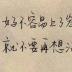 好不容易上了岸
就不要再想